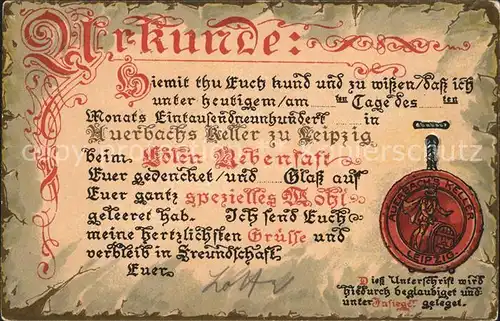 Urkunde:
Hiemit thu Euch kund und zu wißen/daß ich
unter heutigem/am ten Tage des ten
Monats Eintausendneunhundert in
Auerbachs Keller zu Leipzig
beim Edeln Rebensaft
Euer gedencket/und Glaß auf
Euer gantz spezielles Wohl
geleeret hab. Ich send Euch
meine hertzlichsten Grüsse und
verbleib in Freundschaft
Euer
AUERBACHS KELLER
LEIPZIG
Dieß Unterschrift wird
hiedurch beglaubiget und
unter Insiegel geleget.